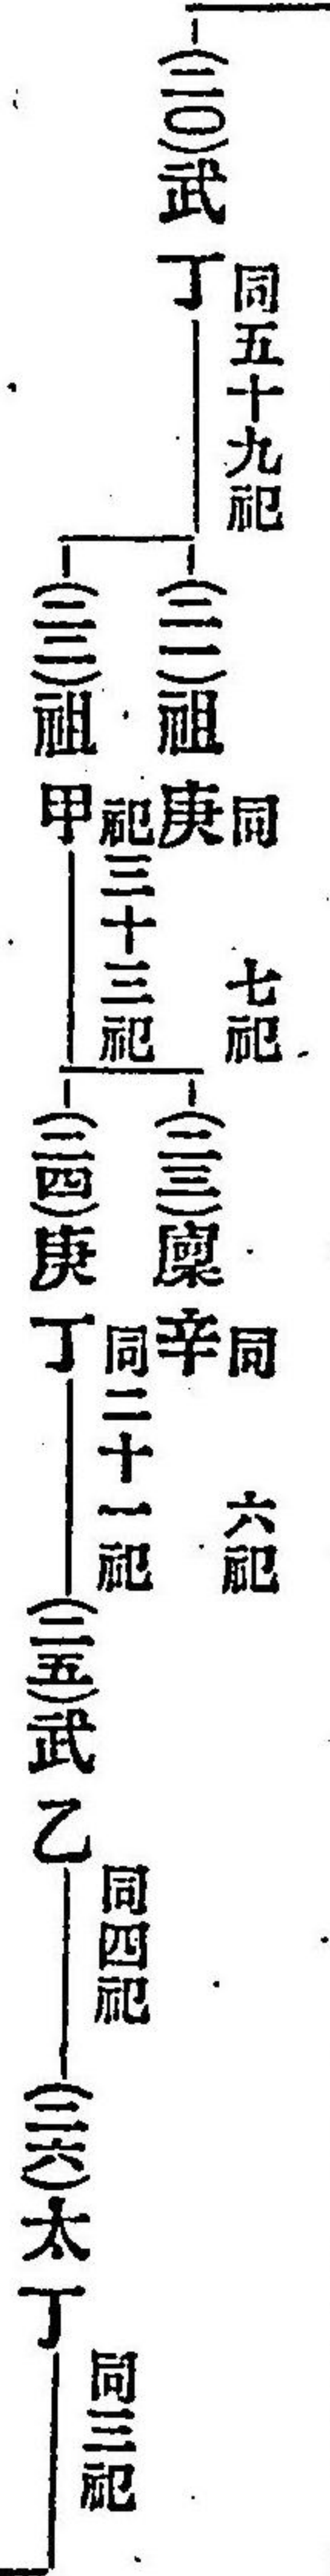 (二〇)武丁
同五十九祀
(二一)祖庚
同七祀
(二二)祖甲
祀三十三祀
(二三)廩辛
同六祀
(二四)庚丁
同二十一祀
(二五)武乙
同四祀
(二六)太丁
同三祀